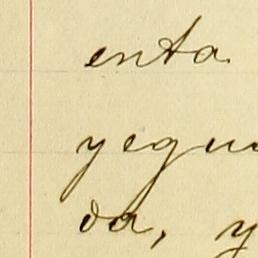 enta
yegu
da, y